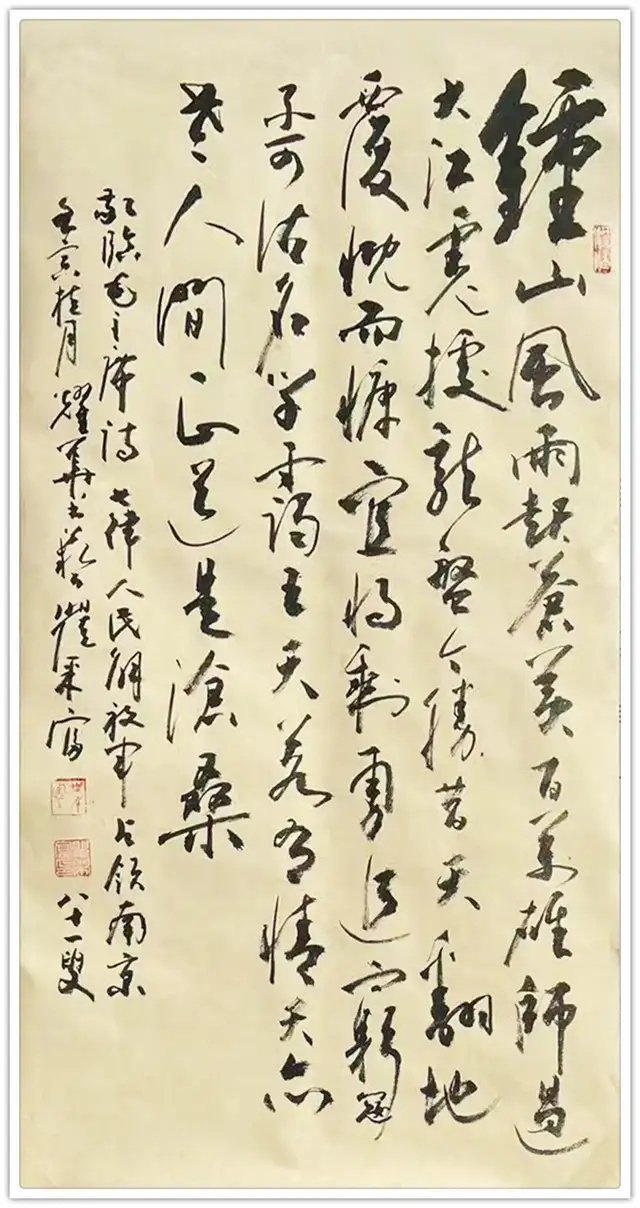 鍾山風雨起蒼黃百萬雄師過
大江虎據龍盤今勝昔天翻地
覆慨而慷宜將剩勇追窮寇
不可沽名學霸王天若有情天亦
老人間正道是滄桑
敬臨毛主席詩七律人民解放軍占領南京
壬寅桂月耀華書藝崔秉富八十一叟